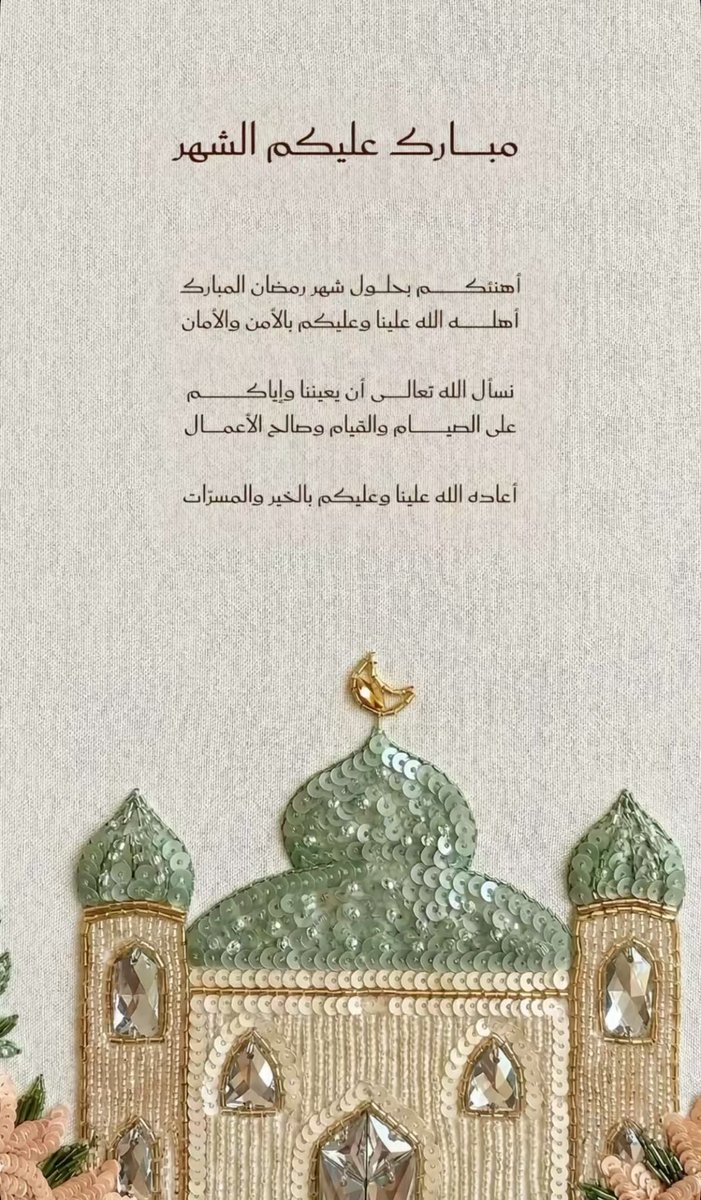 مبارك عليكم الشهر
أهنئكم بحلول شهر رمضان المبارك
أهله الله علينا وعليكم بالأمن والأمان
نسأل الله تعالى أن يعيننا وإياكم
على الصيام والقيام وصالح الأعمال
أعاده الله علينا وعليكم بالخير والمسرّات